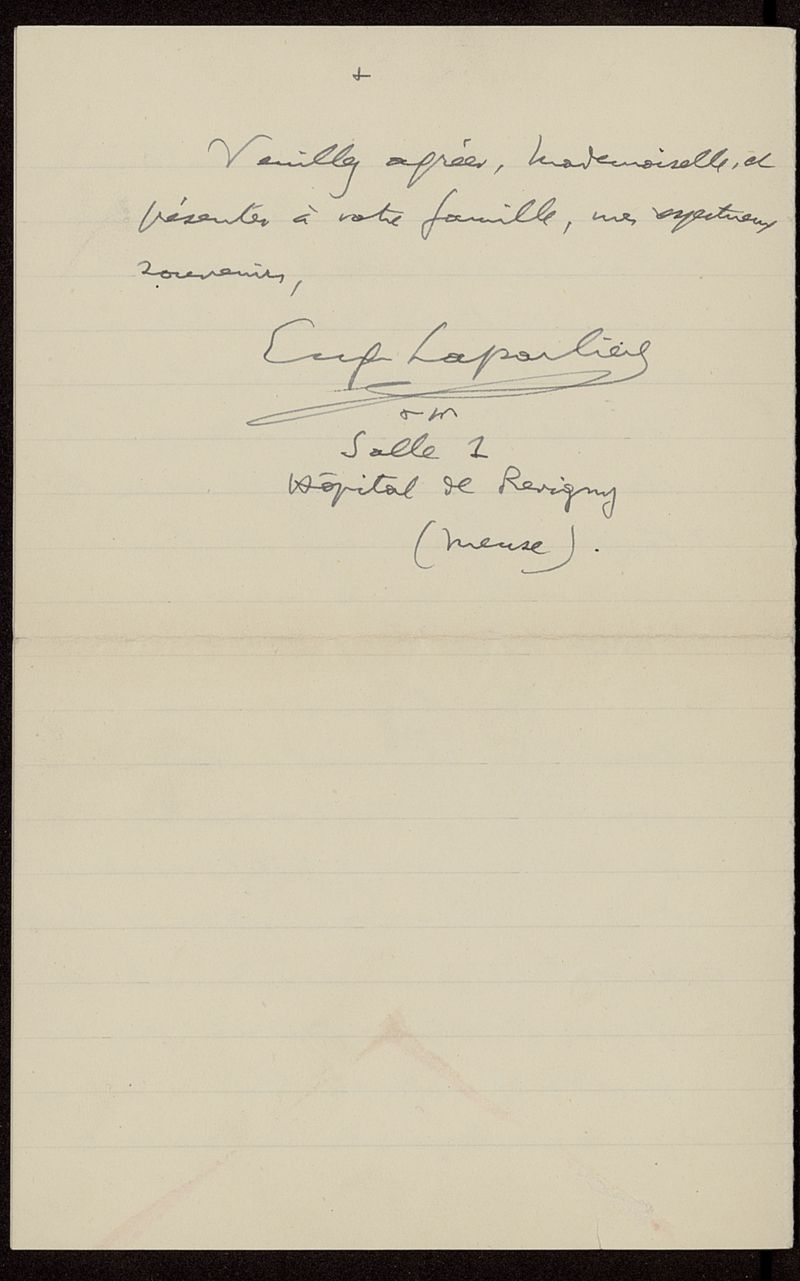 +
Veuillez agréer, Mademoiselle, et
présenter à votre famille, mes respectueux
souvenirs,
Eug Laporlière
Salle 1
Hôpital de Revigny
(Meuse).